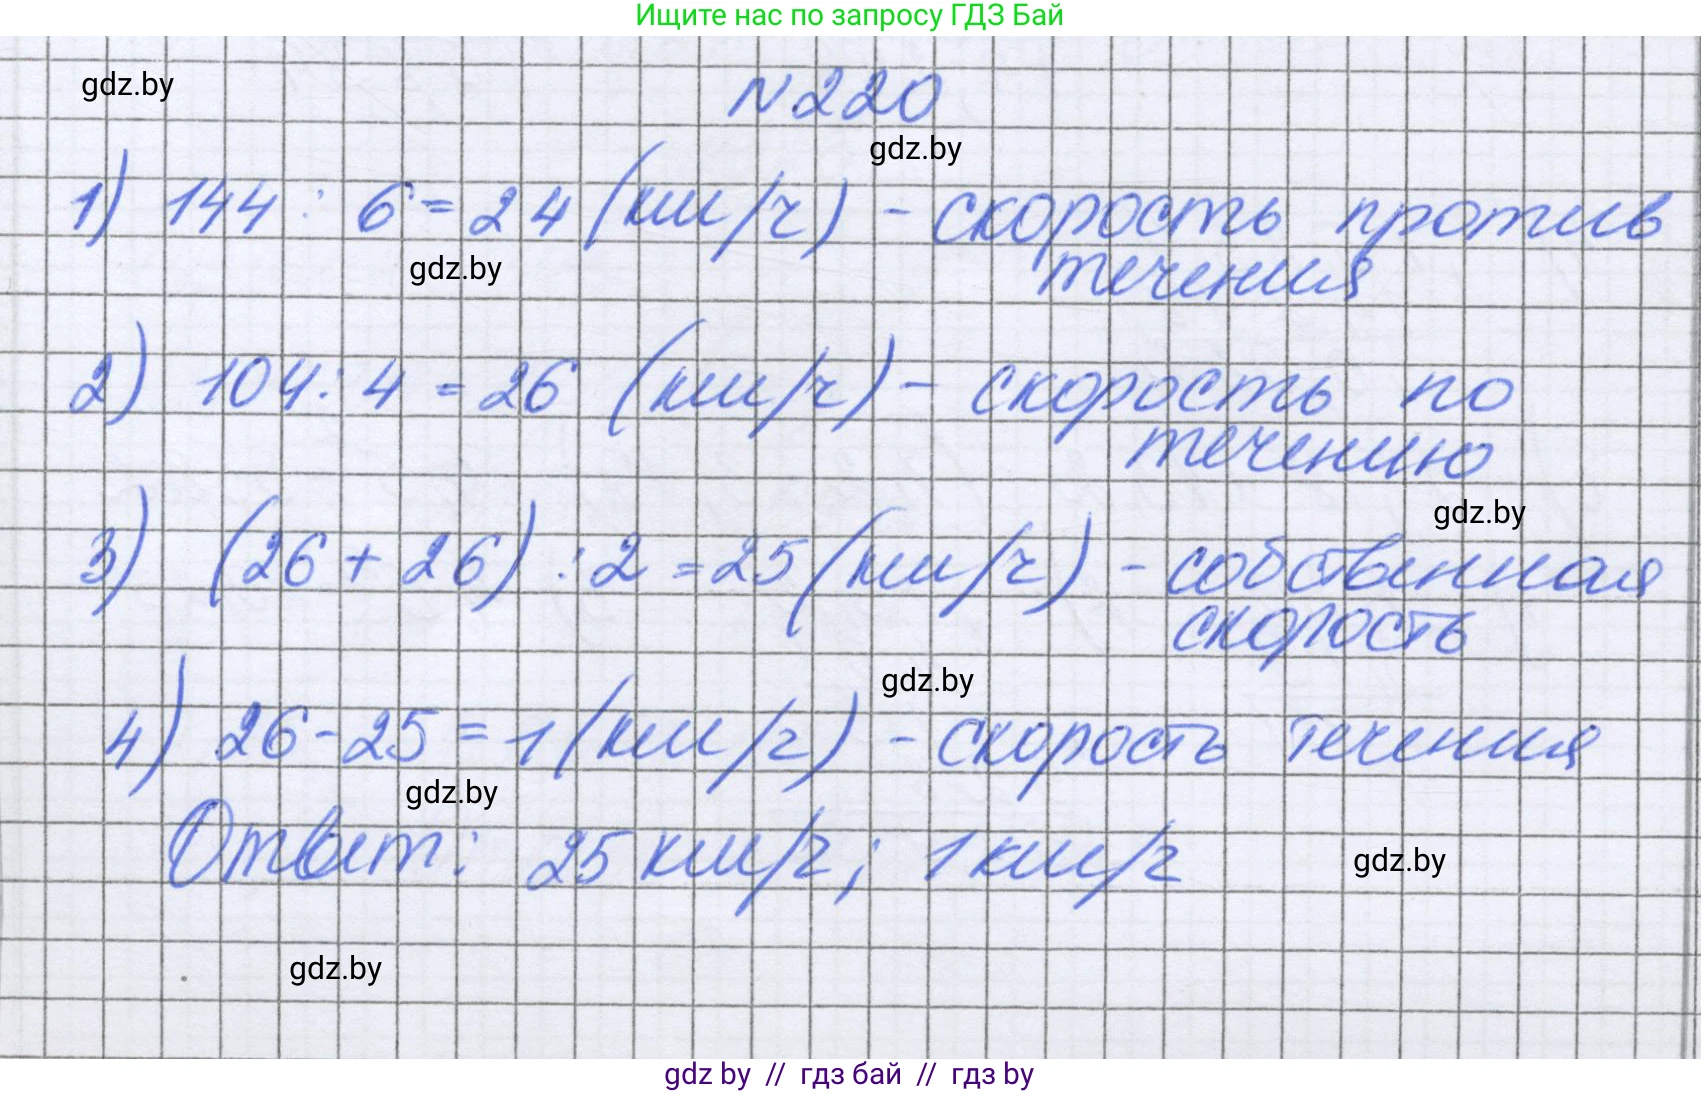 Ищите нас по запросу ГДЗ Бай
gdz.by
N220
gdz.by
1) 144 : 6 = 24 (км/ч) - скорость против
течения
gdz.by
2) 104 : 4 = 26 (км/ч) - скорость по
течению
gdz.by
3) (26 + 26) : 2 = 25 (км/ч) - собственная
скорость
gdz.by
4) 26 - 25 = 1 (км/ч) - скорость течения
gdz.by
Ответ: 25 км/ч; 1 км/ч
gdz.by
gdz.by
gdz by // гдз бай // гдз by